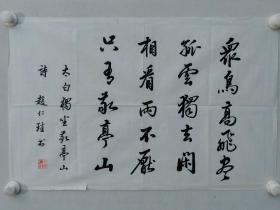 衆鳥高飛盡
孤雲獨去閑
相看兩不厭
只有敬亭山
太白獨坐敬亭山
詩 趙仁珪書